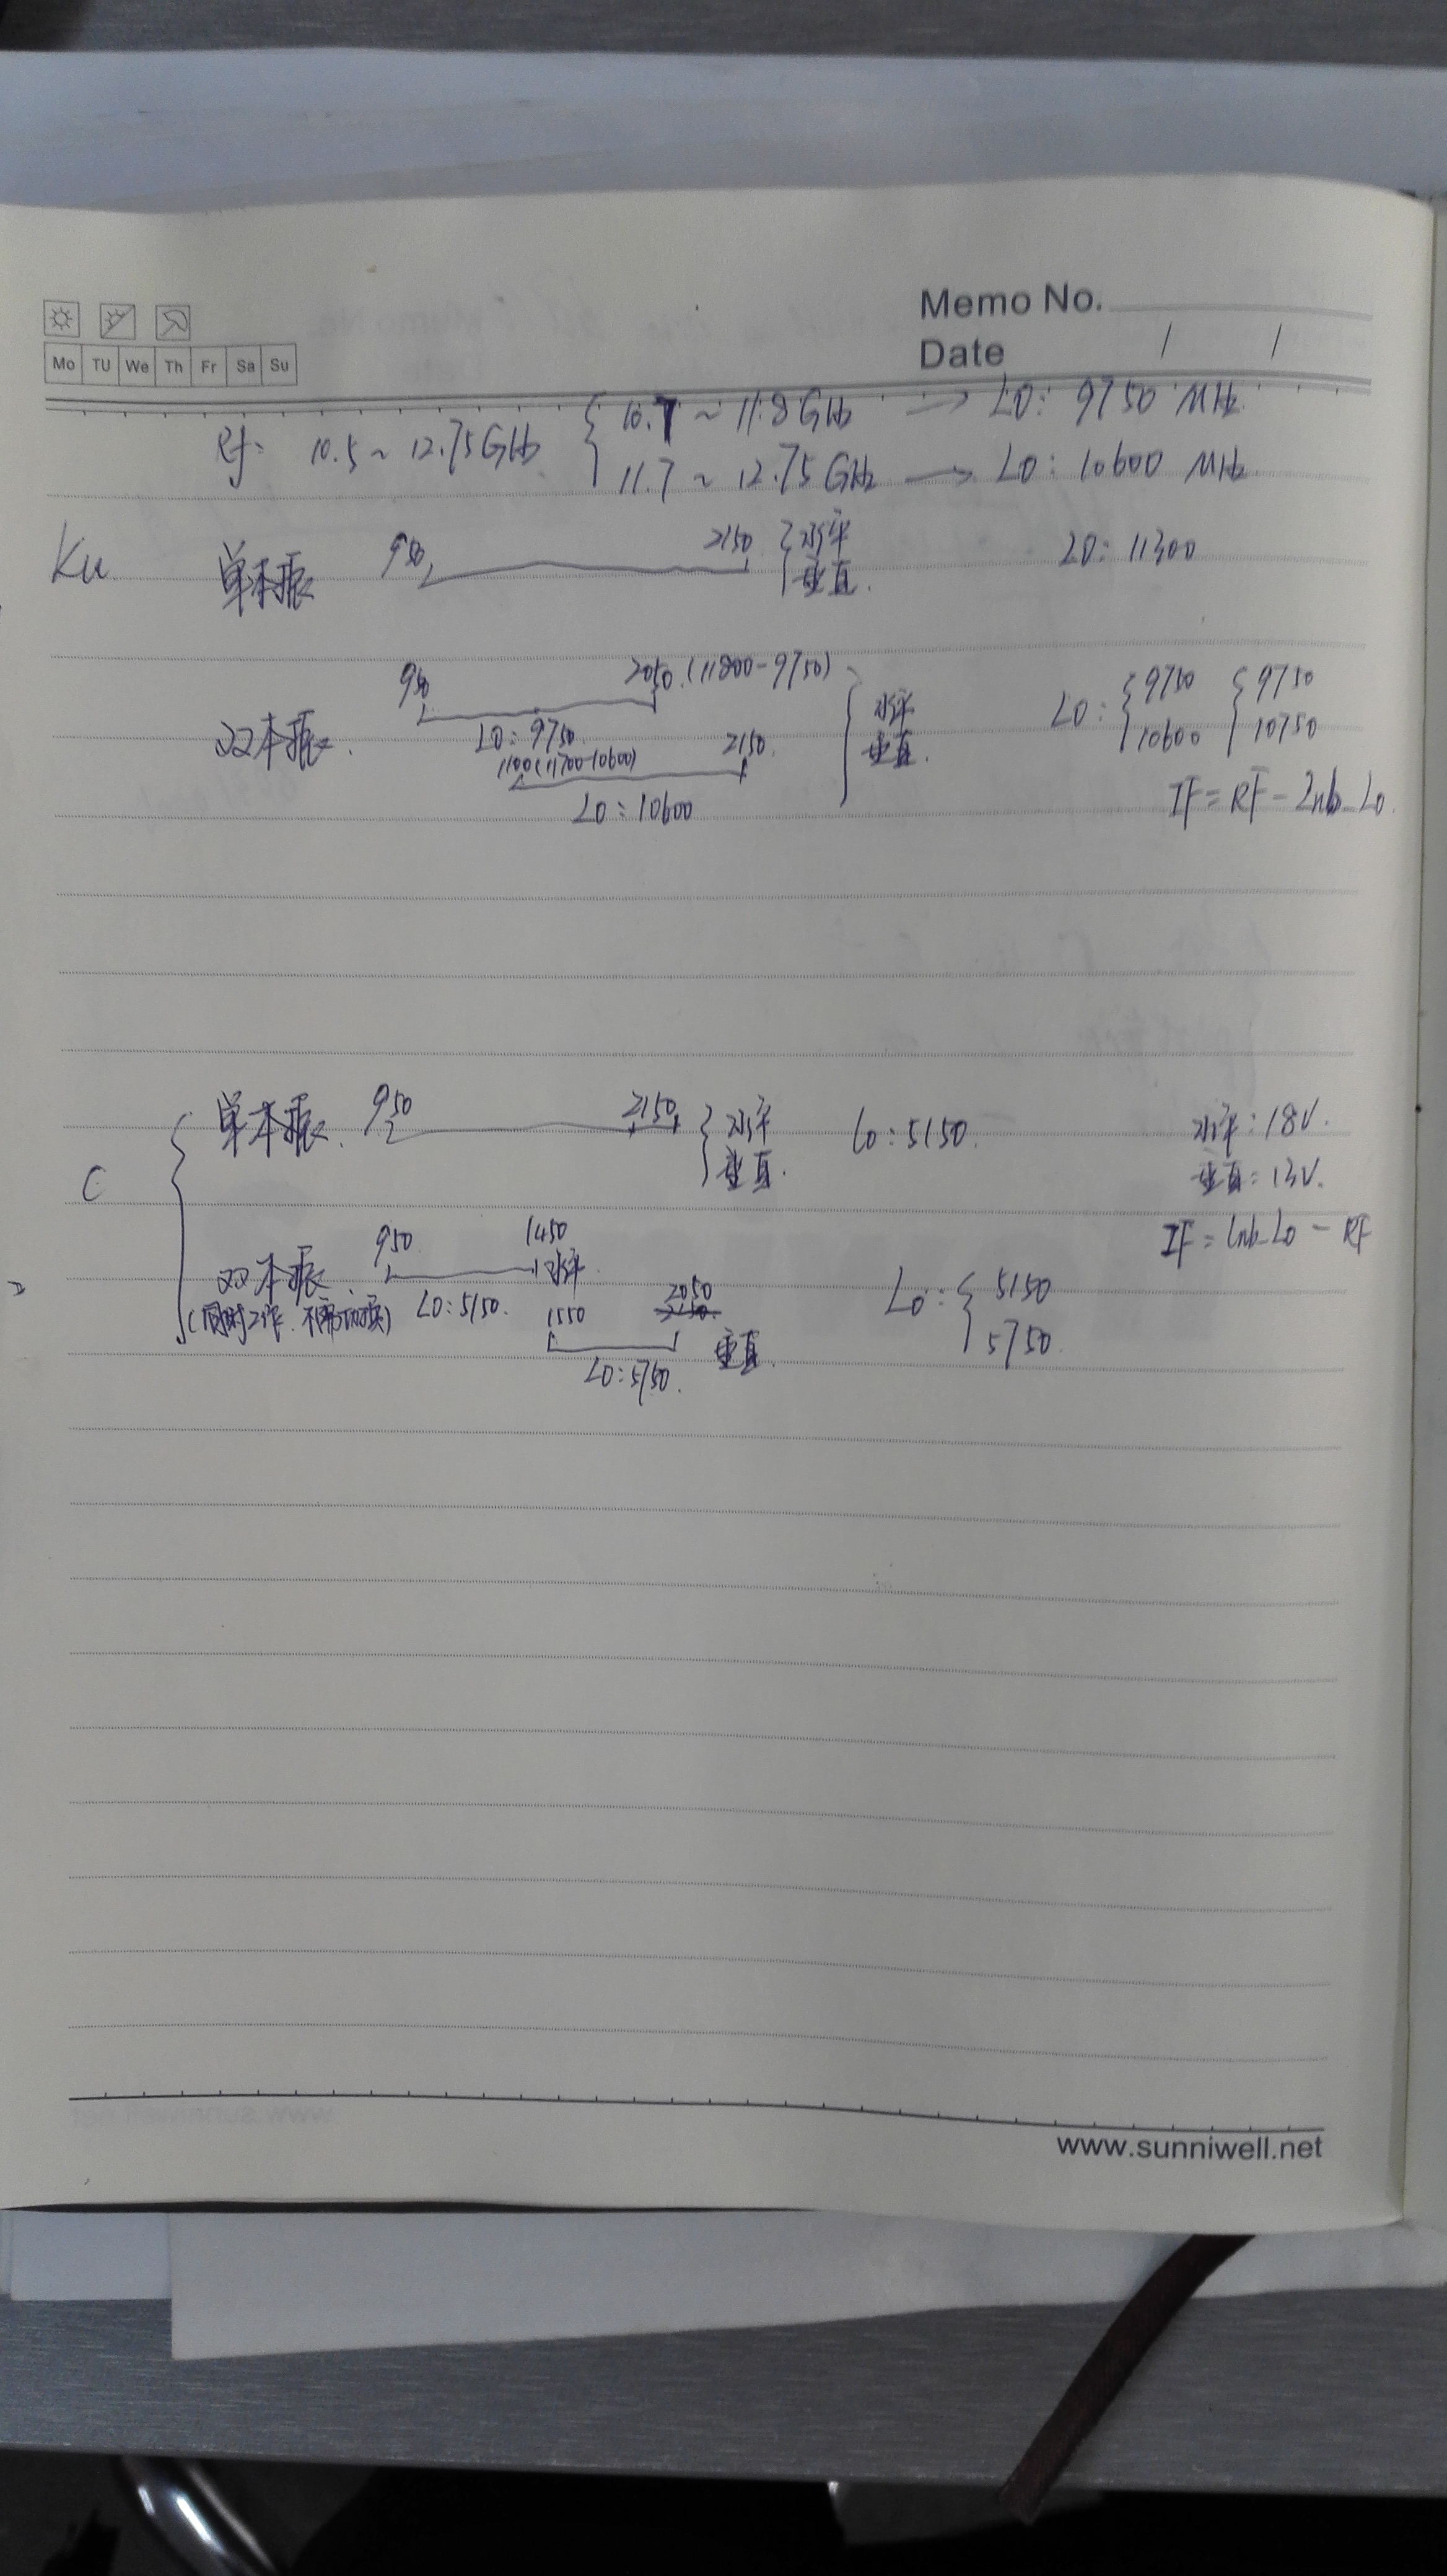 Memo No.
Date / /
Mo TU We Th Fr Sa Su
Rf: 10.5 ~ 12.75GHz { 10.7 ~ 11.8GHz → LO: 9750 MHz
11.7 ~ 12.75GHz → LO: 10600 MHz
Ku 单本振 950 2150 { 水平 垂直. LO: 11300
双本振. 950 2050.(11800-9750) LO: 9750
1100(11700-10600) 2150 LO: 10600
{ 水平 垂直. LO: { 9750 10600 { 9750 10750
IF = RF - Lnb_Lo.
C { 单本振. 950 2150 { 水平 垂直. Lo: 5150. 水平: 18V.
垂直: 13V.
IF = Lnb_Lo - RF
双本振. 950 1450 水平 LO: 5150.
(同时工作. 不需切换) 1550 2050 垂直. LO: 5750.
Lo: { 5150 5750
www.sunniwell.net